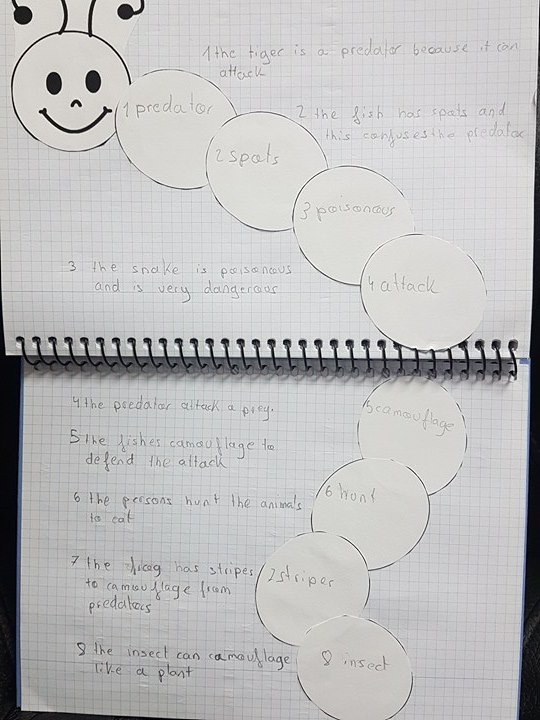 1 the tiger is a predator because it can
attack
1 predator
2 the fish has spats and
this confuses the predator
2 spots
3 poisonous
3 the snake is poisonous
and is very dangerous
4 attack
4 the predator attack a prey.
5 camouflage
5 the fishes camouflage to
defend the attack
6 the persons hunt the animals
to eat
6 hunt
7 the frog has stripes
to camouflage from
predators
7 stripes
8 the insect can camouflage
like a plant
8 insect